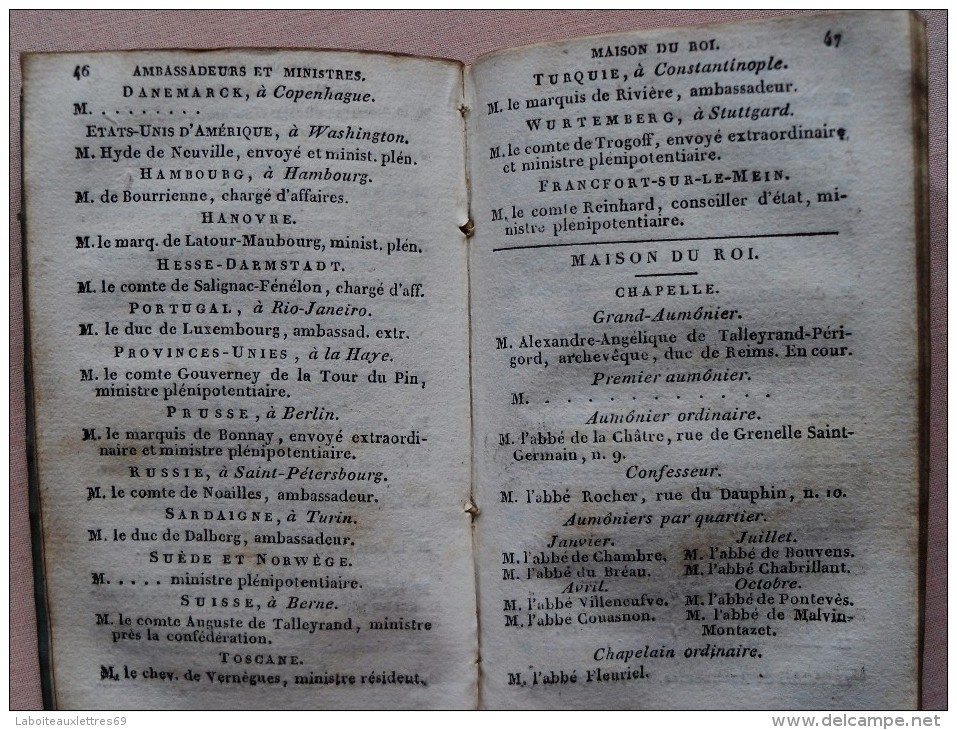 46 AMBASSADEURS ET MINISTRES.
DANEMARCK, à Copenhague.
M. . . . . . . . . .
ETATS-UNIS D'AMÉRIQUE, à Washington.
M. Hyde de Neuville, envoyé et minist. plén.
HAMBOURG, à Hambourg.
M. de Bourrienne, chargé d'affaires.
HANOVRE.
M. le marq. de Latour-Maubourg, minist. plén.
HESSE-DARMSTADT.
M. le comte de Salignac-Fénélon, chargé d'aff.
PORTUGAL, à Rio-Janeiro.
M. le duc de Luxembourg, ambassad. extr.
PROVINCES-UNIES, à la Haye.
M. le comte Gouverney de la Tour du Pin,
ministre plénipotentiaire.
PRUSSE, à Berlin.
M. le marquis de Bonnay, envoyé extraordi-
naire et ministre plénipotentiaire.
RUSSIE, à Saint-Pétersbourg.
M. le comte de Noailles, ambassadeur.
SARDAIGNE, à Turin.
M. le duc de Dalberg, ambassadeur.
SUÈDE ET NORWÈGE.
M. . . . . ministre plénipotentiaire.
SUISSE, à Berne.
M. le comte Auguste de Talleyrand, ministre
près la confédération.
TOSCANE.
M. le chev. de Vernègues, ministre résident.
MAISON DU ROI. 47
TURQUIE, à Constantinople.
M. le marquis de Rivière, ambassadeur.
WURTEMBERG, à Stuttgard.
M. le comte de Trogoff, envoyé extraordinaire
et ministre plénipotentiaire.
FRANCFORT-SUR-LE-MEIN.
M. le comte Reinhard, conseiller d'état, mi-
nistre plénipotentiaire.
MAISON DU ROI.
CHAPELLE.
Grand-Aumónier.
M. Alexandre-Angélique de Talleyrand-Péri-
gord, archevêque, duc de Reims. En cour.
Premier aumónier.
M. . . . . . . . . . . . .
Aumónier ordinaire.
M. l'abbé de la Châtre, rue de Grenelle Saint-
Germain, n. 9.
Confesseur.
M. l'abbé Rocher, rue du Dauphin, n. 10.
Aumóniers par quartier.
Janvier.
M. l'abbé de Chambre.
M. l'abbé du Bréau.
Avril.
M. l'abbé Villeneufve.
M. l'abbe Couasnon.
Juillet.
M. l'abbé de Bouvens.
M. l'abbé Chabrillant.
Octobre.
M. l'abbé de Pontevès.
M. l'abbé de Malvin-
Montazet.
Chapelain ordinaire.
M. l'abbé Fleuriel.
Laboiteauxlettres69
delcampe.net